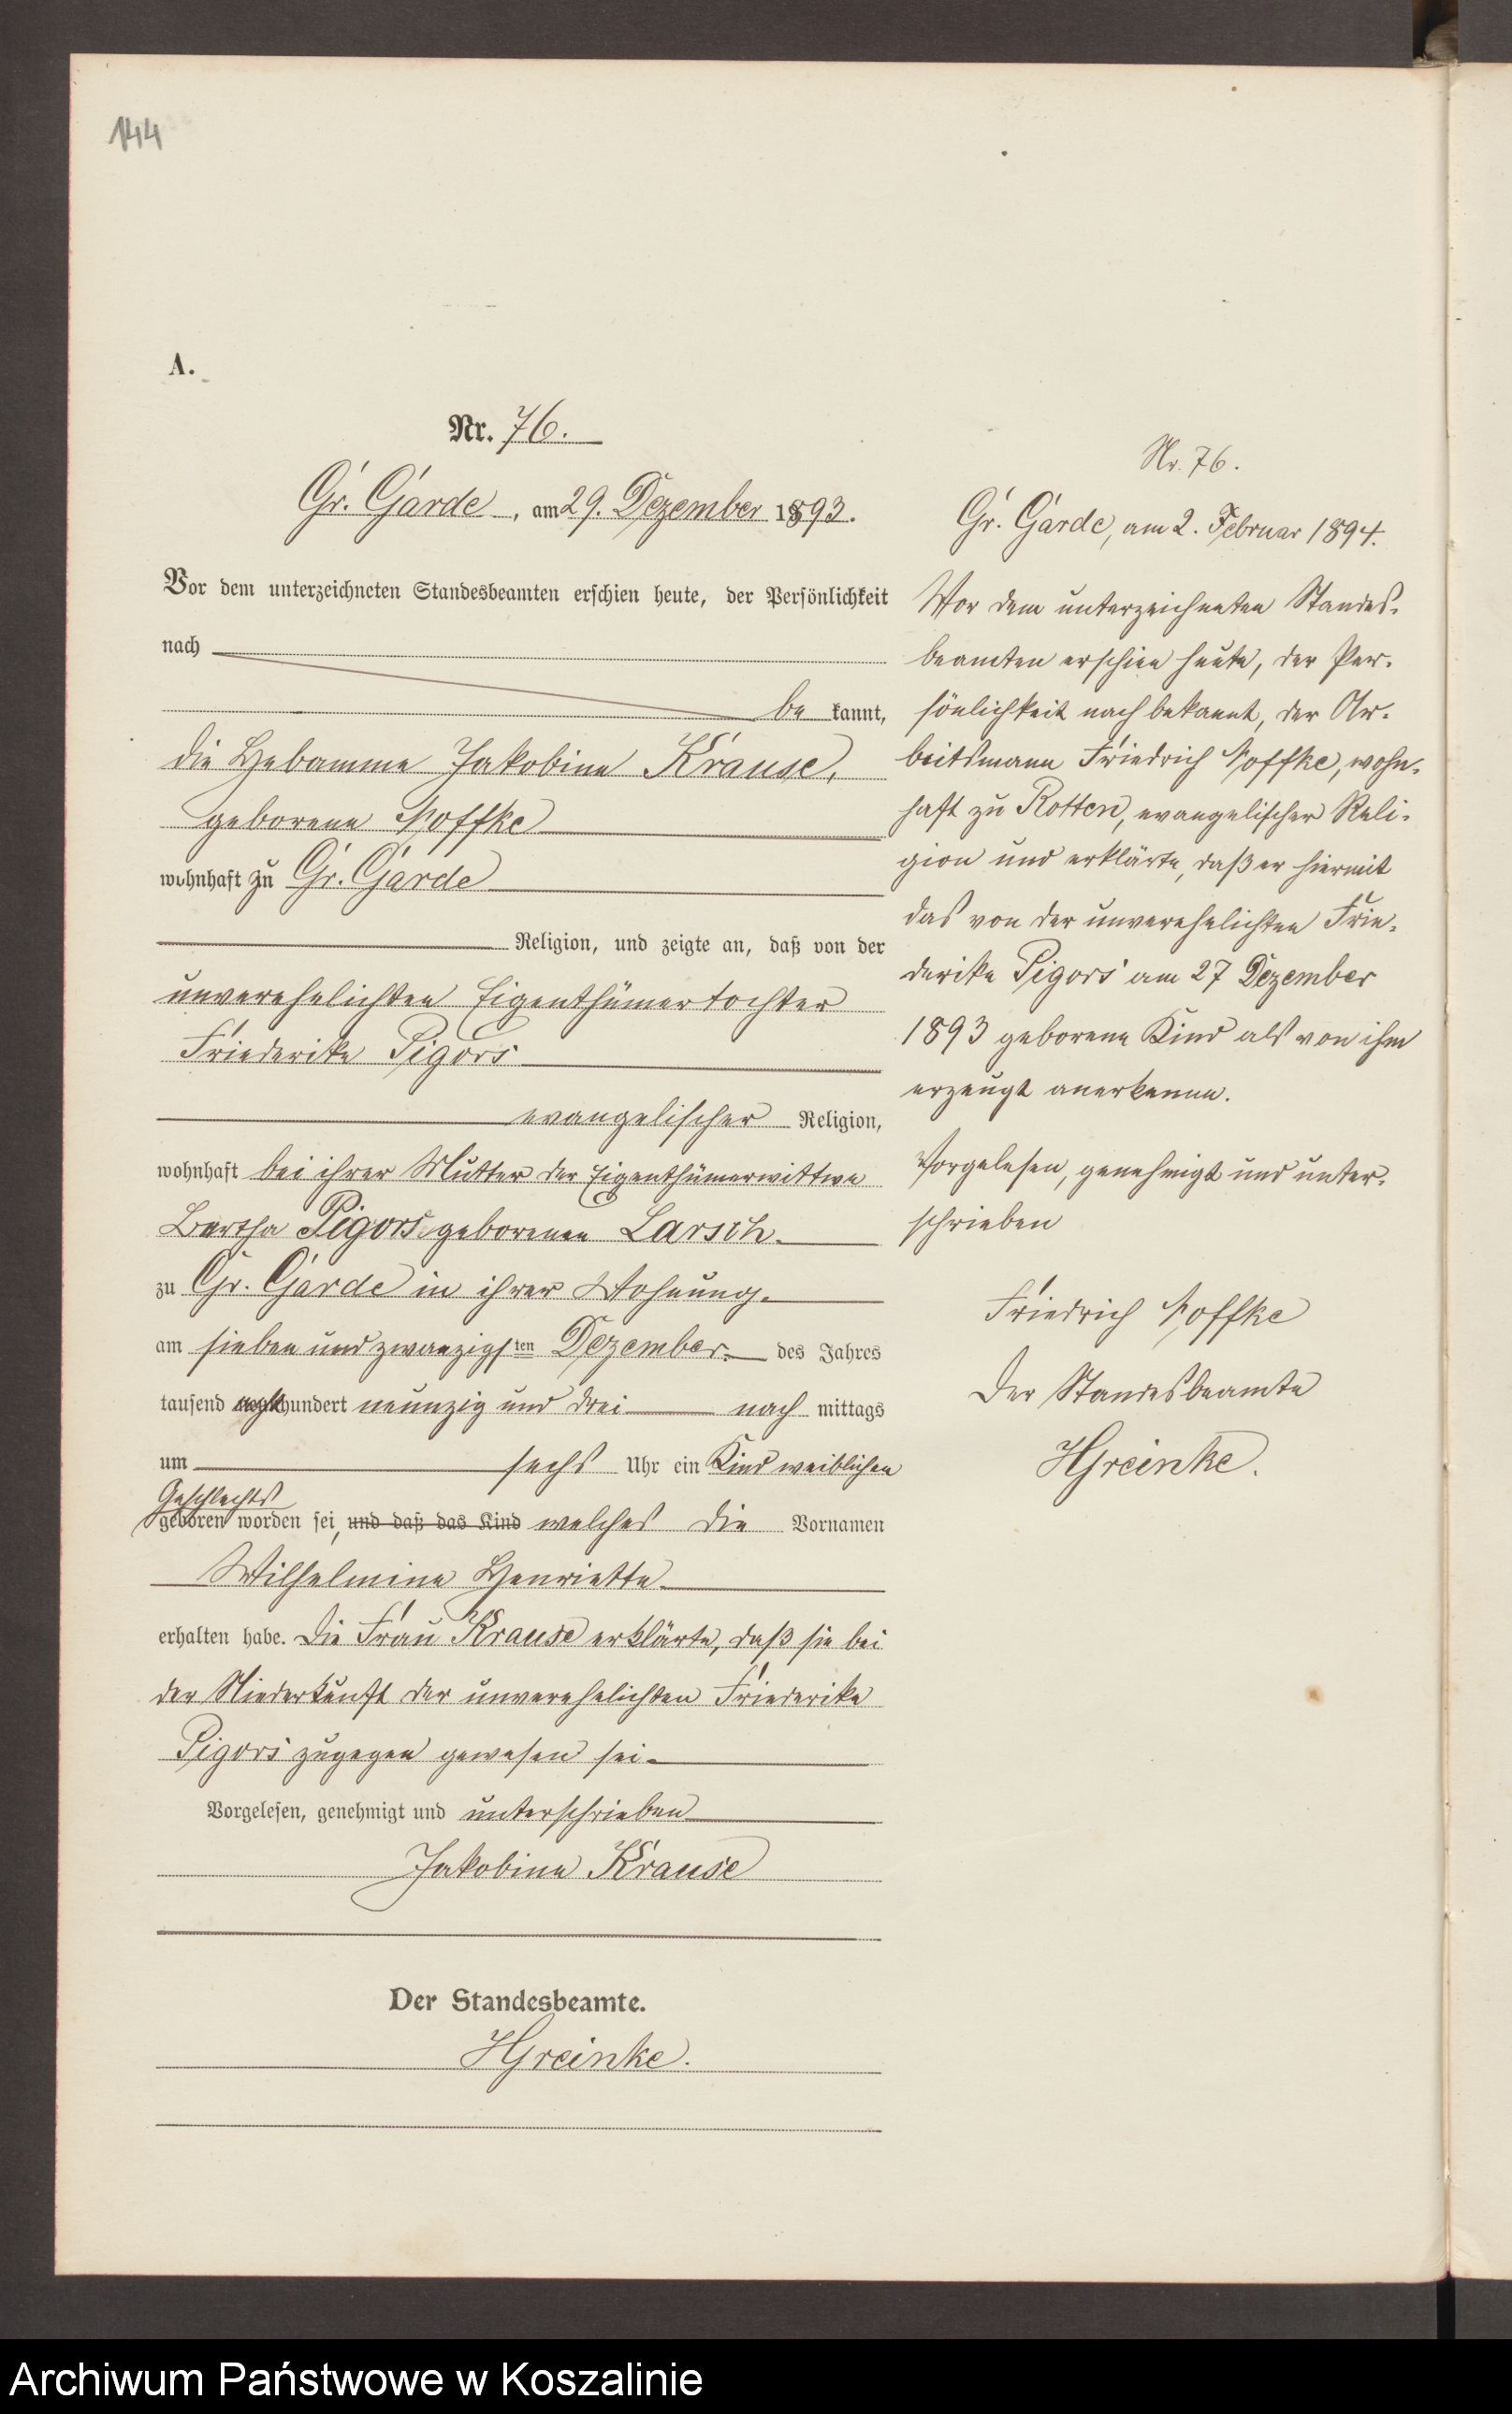 144
A.
Nr. 76.
Gr. Garde, am 29. Dezember 1893.
Vor dem unterzeichneten Standesbeamten erschien heute, der Persönlichkeit
nach
be kannt,
die Hebamme Jakobine Krause,
geborene Noffke
wohnhaft zu Gr. Garde
Religion, und zeigte an, daß von der
unverehelichten Eigenthümertochter
Friederike Pigors
evangelischer Religion,
wohnhaft bei ihrer Mutter der Eigenthümerwittwe
Bertha Pigors geborenen Larsch
zu Gr. Garde in ihrer Wohnung
am sieben und zwanzigsten Dezember des Jahres
tausend achthundert neunzig und drei nach mittags
um sechs Uhr ein Kind weiblichen
Geschlechts
geboren worden sei, und daß das Kind welches die Vornamen
Wilhelmine Henriette
erhalten habe. Die Frau Krause erklärte, daß sie bei
der Niederkunft der unverehelichten Friederike
Pigors zugegen gewesen sei
Vorgelesen, genehmigt und unterschrieben
Jakobine Krause
Der Standesbeamte.
HGreinke.
Nr. 76.
Gr. Garde, am 2. Februar 1894.
Vor dem unterzeichneten Standes-
beamten erschien heute, der Per-
sönlichkeit nach bekannt, der Ar-
beitsmann Friedrich Noffke, wohn-
haft zu Rotten, evangelischer Reli-
gion und erklärte, daß er hiermit
das von der unverehelichten Frie-
derike Pigors am 27 Dezember
1893 geborene Kind als von ihm
erzeugt anerkenne.
Vorgelesen, genehmigt und unter-
schrieben
Friedrich Noffke
Der Standesbeamte
HGreinke.
Archiwum Państwowe w Koszalinie